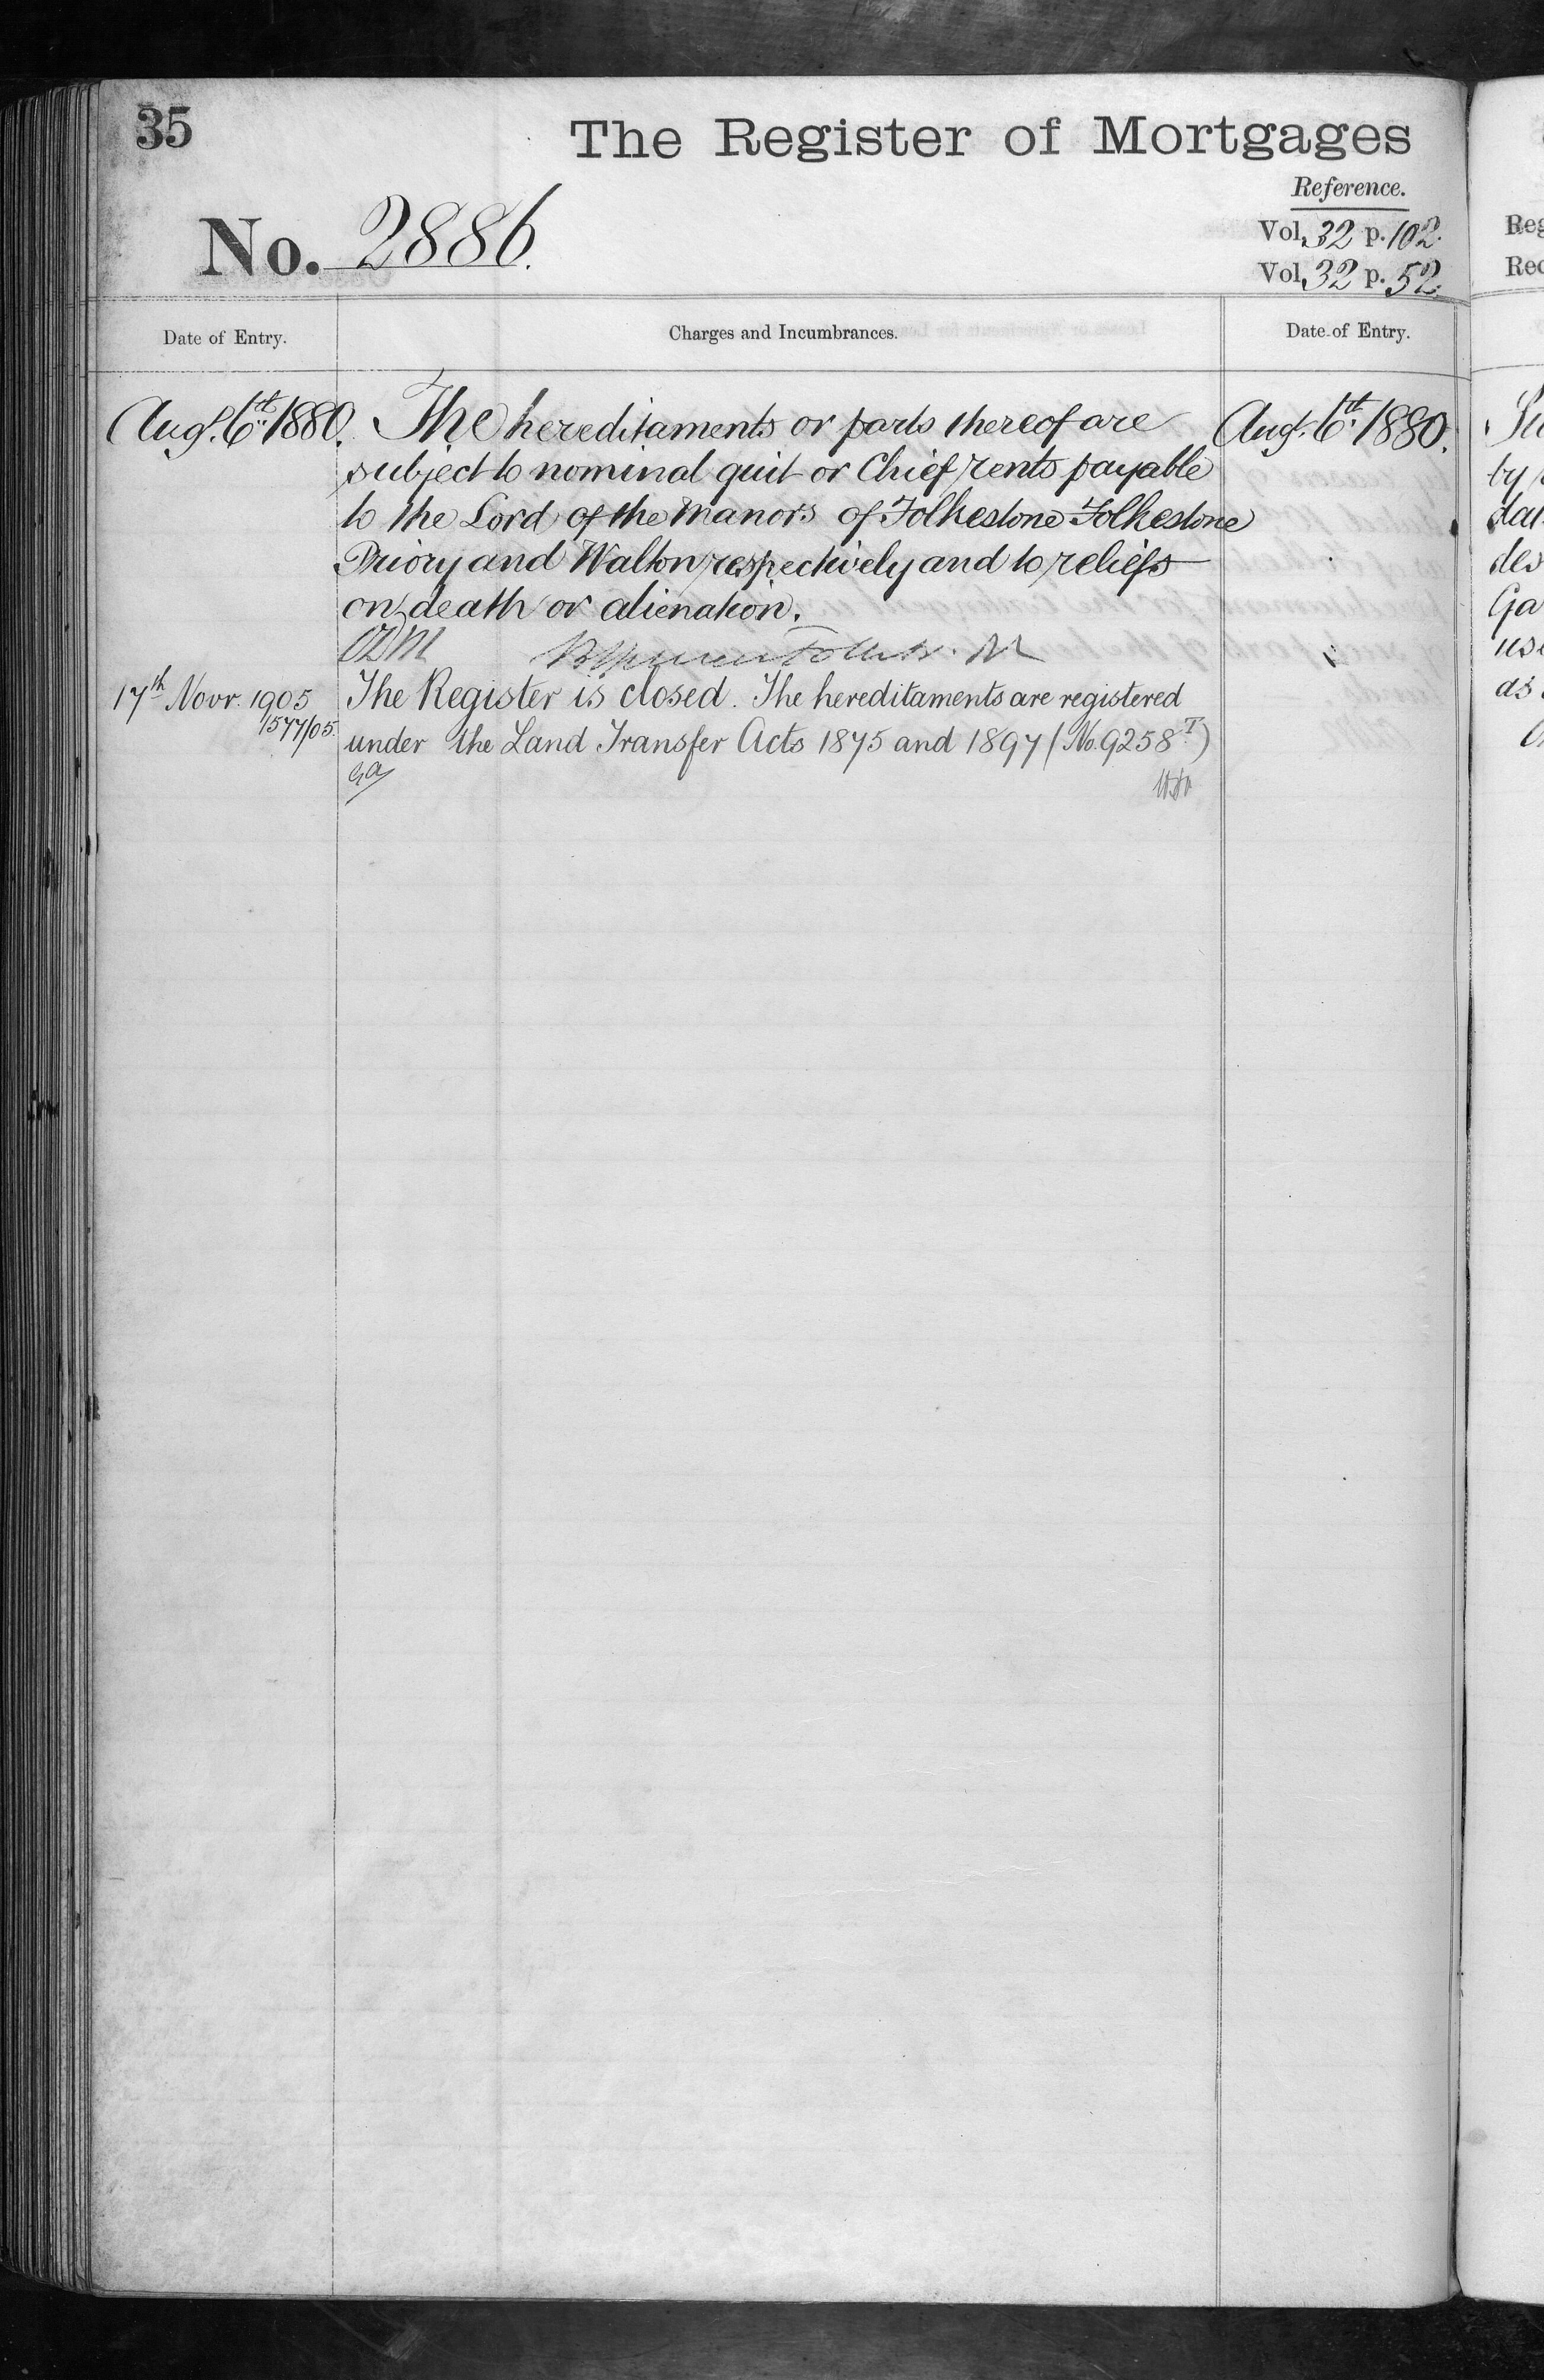 35
The Register of Mortgages
Reference.
No. 2886.
Vol. 32 p. 102.
Vol. 32 p. 52.
Date of Entry.
Charges and Incumbrances.
Date of Entry.
Augt. 6th 1880. The hereditaments or parts thereof are Augt. 6th 1880.
subject to nominal quit or Chief rents payable
to the Lord of the Manors of Folkestone Folkestone
Priory and Walton respectively and to reliefs
on death or alienation.
17th Novr. 1905 The Register is closed. The hereditaments are registered
1577/05. under the Land Transfer Acts 1875 and 1897 (No. 9258T)
Reg
Rec
by
dat
des
Ga
use
as